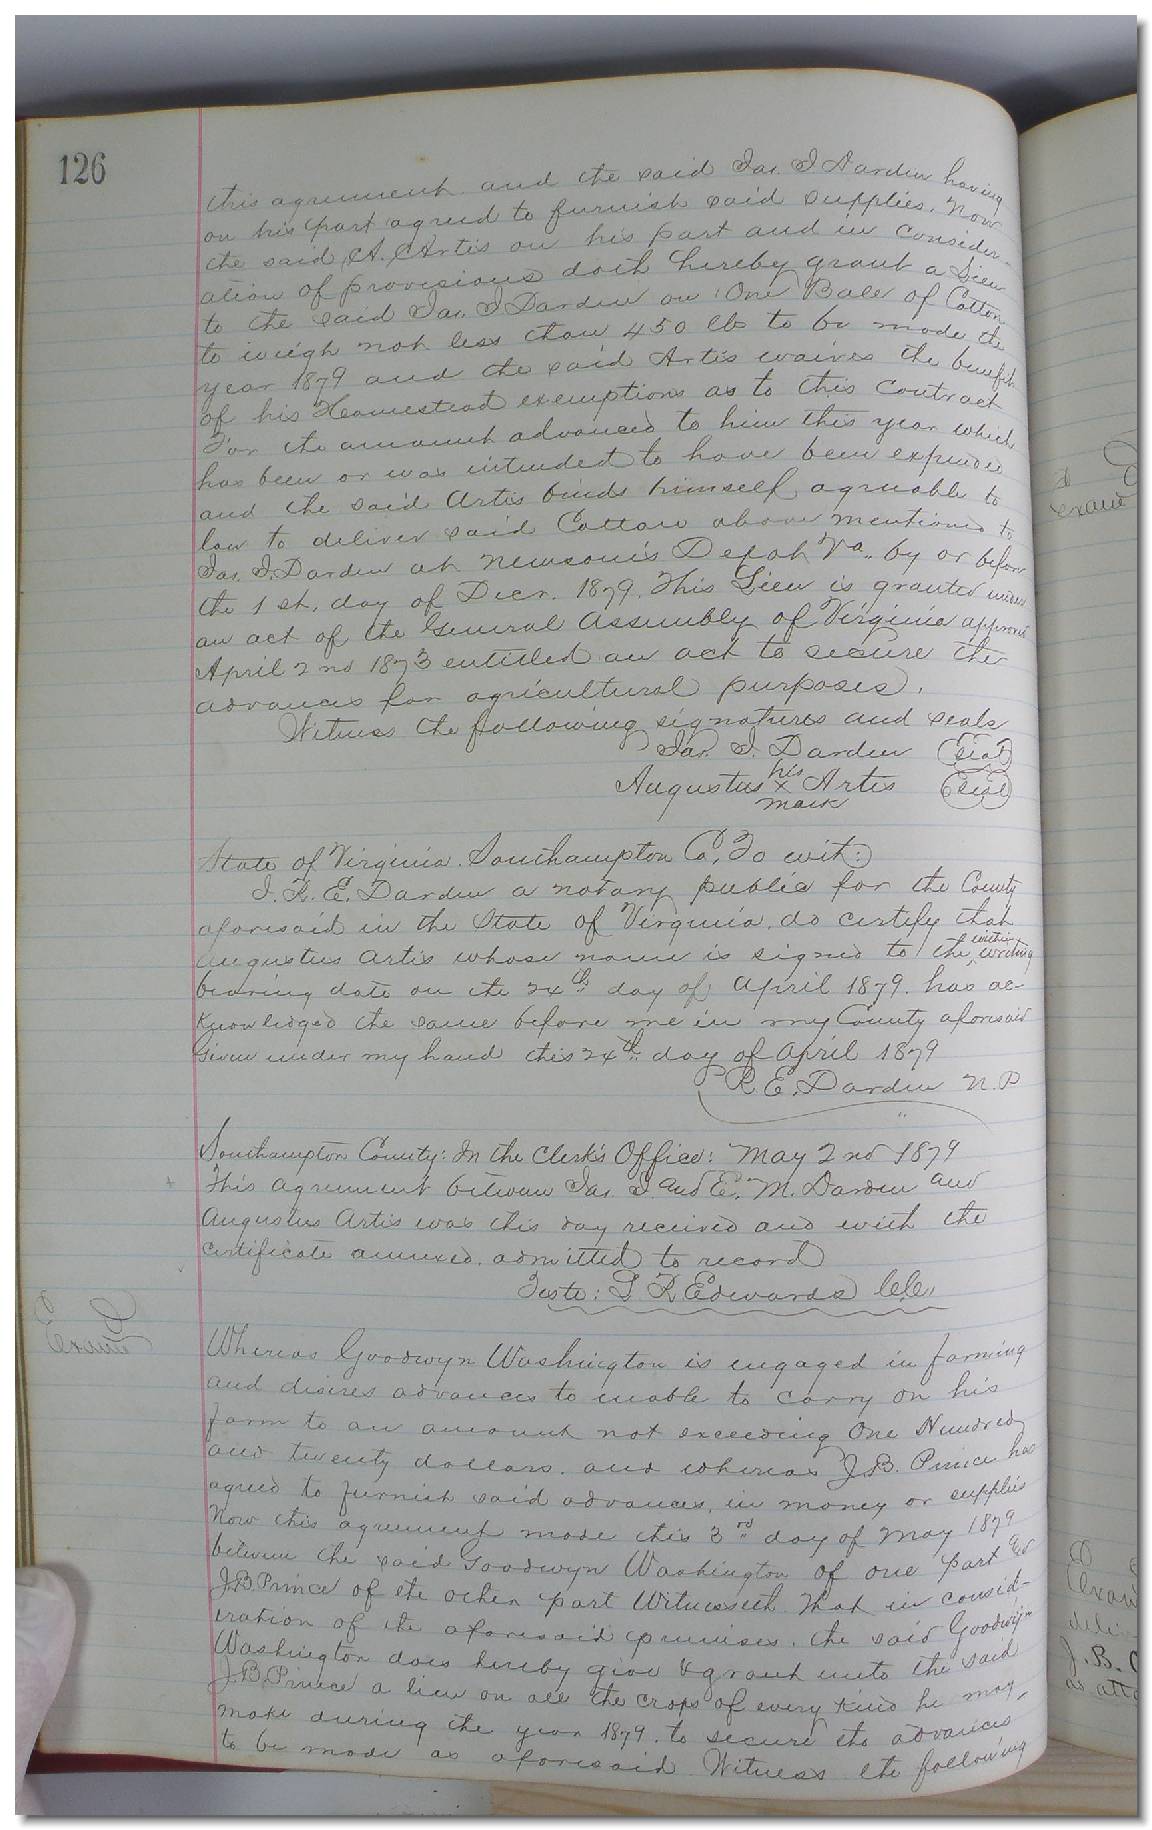 126
this agreement and the said Jas. J Darden having
on his part agreed to furnish said supplies. Now
the said A. Artis on his part and in consider-
ation of provisions doth hereby grant a Lien
to the said Jas. J Darden on One Bale of Cotton
to weigh not less than 450 lbs to be made the
year 1879 and the said Artis waives the benefit
of his Homestead exemptions as to this contract
For the amount advanced to him this year which
has been or was intended to have been expended
and the said Artis binds himself agreeable to
law to deliver said Cotton above mentioned to
Jas. J. Darden at Newsom's Depot Va., by or before
the 1st. day of Decr. 1879. This Lien is granted under
an act of the General Assembly of Virginia approved
April 2nd 1873 entitled an act to secure the
advances for agricultural purposes.
Witness the following signatures and seals
Jas. J. Darden (Seal)
Augustus his x mark Artis (Seal)
State of Virginia. Southampton Co, To wit:
I. R. E. Darden a notary public for the County
aforesaid in the State of Virginia, do certify that
Augustus Artis whose name is signed to the within writing
bearing date on the 24th day of April 1879. has ac-
knowledged the same before me in my County aforesaid
Given under my hand this 24th day of April 1879
R. E. Darden N. P
Southampton County: In the Clerk's Office: May 2nd 1879
This agreement between Jas. J and E. M. Darden and
Augustus Artis was this day received and with the
certificate annexed, admitted to record
Teste: L R Edwards C.C.
Examd
Whereas Goodwyn Washington is engaged in farming
and desires advances to enable to carry on his
farm to an amount not exceeding One Hundred
and twenty dollars. and whereas J.B. Prince has
agreed to furnish said advances, in money or supplies
Now this agreement made this 3rd day of May 1879
between the said Goodwyn Washington of one part and
J.B. Prince of the other part Witnesseth That in consid-
eration of the aforesaid premises, the said Goodwyn
Washington does hereby give & grant unto the said
J.B. Prince a lien on all the crops of every kind he may
make during the year 1879. to secure the advances
to be made as aforesaid Witness the following